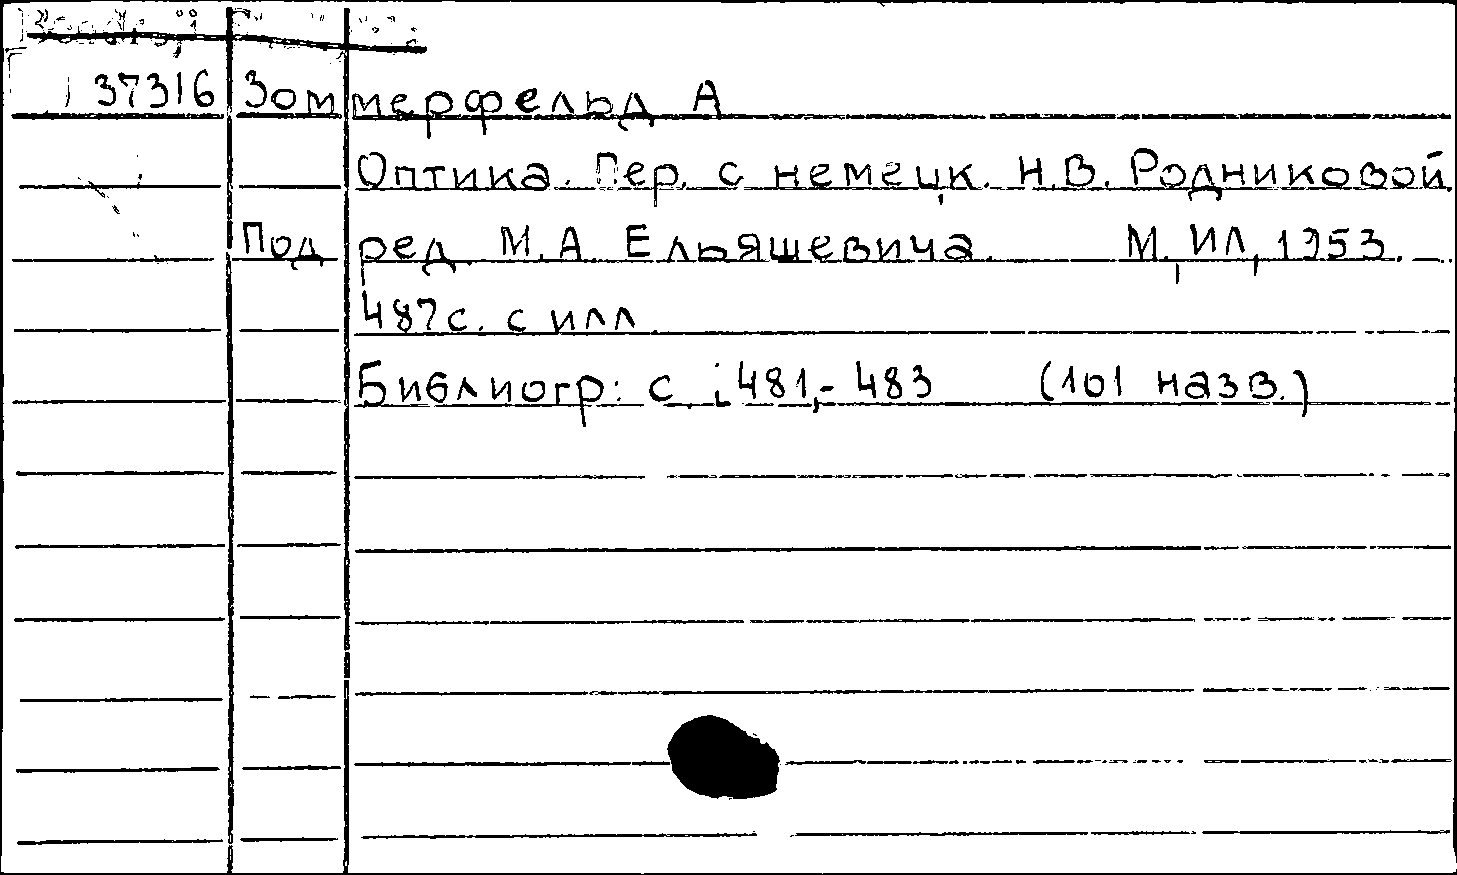 37316 Зоммерфельд А
Оптика. Пер. с немецк. Н.В. Родниковой.
Под ред. М.А. Ельяшевича. М., ИЛ, 1953.
487с. с илл.
Библиогр: с. 481,- 483 (101 назв.)